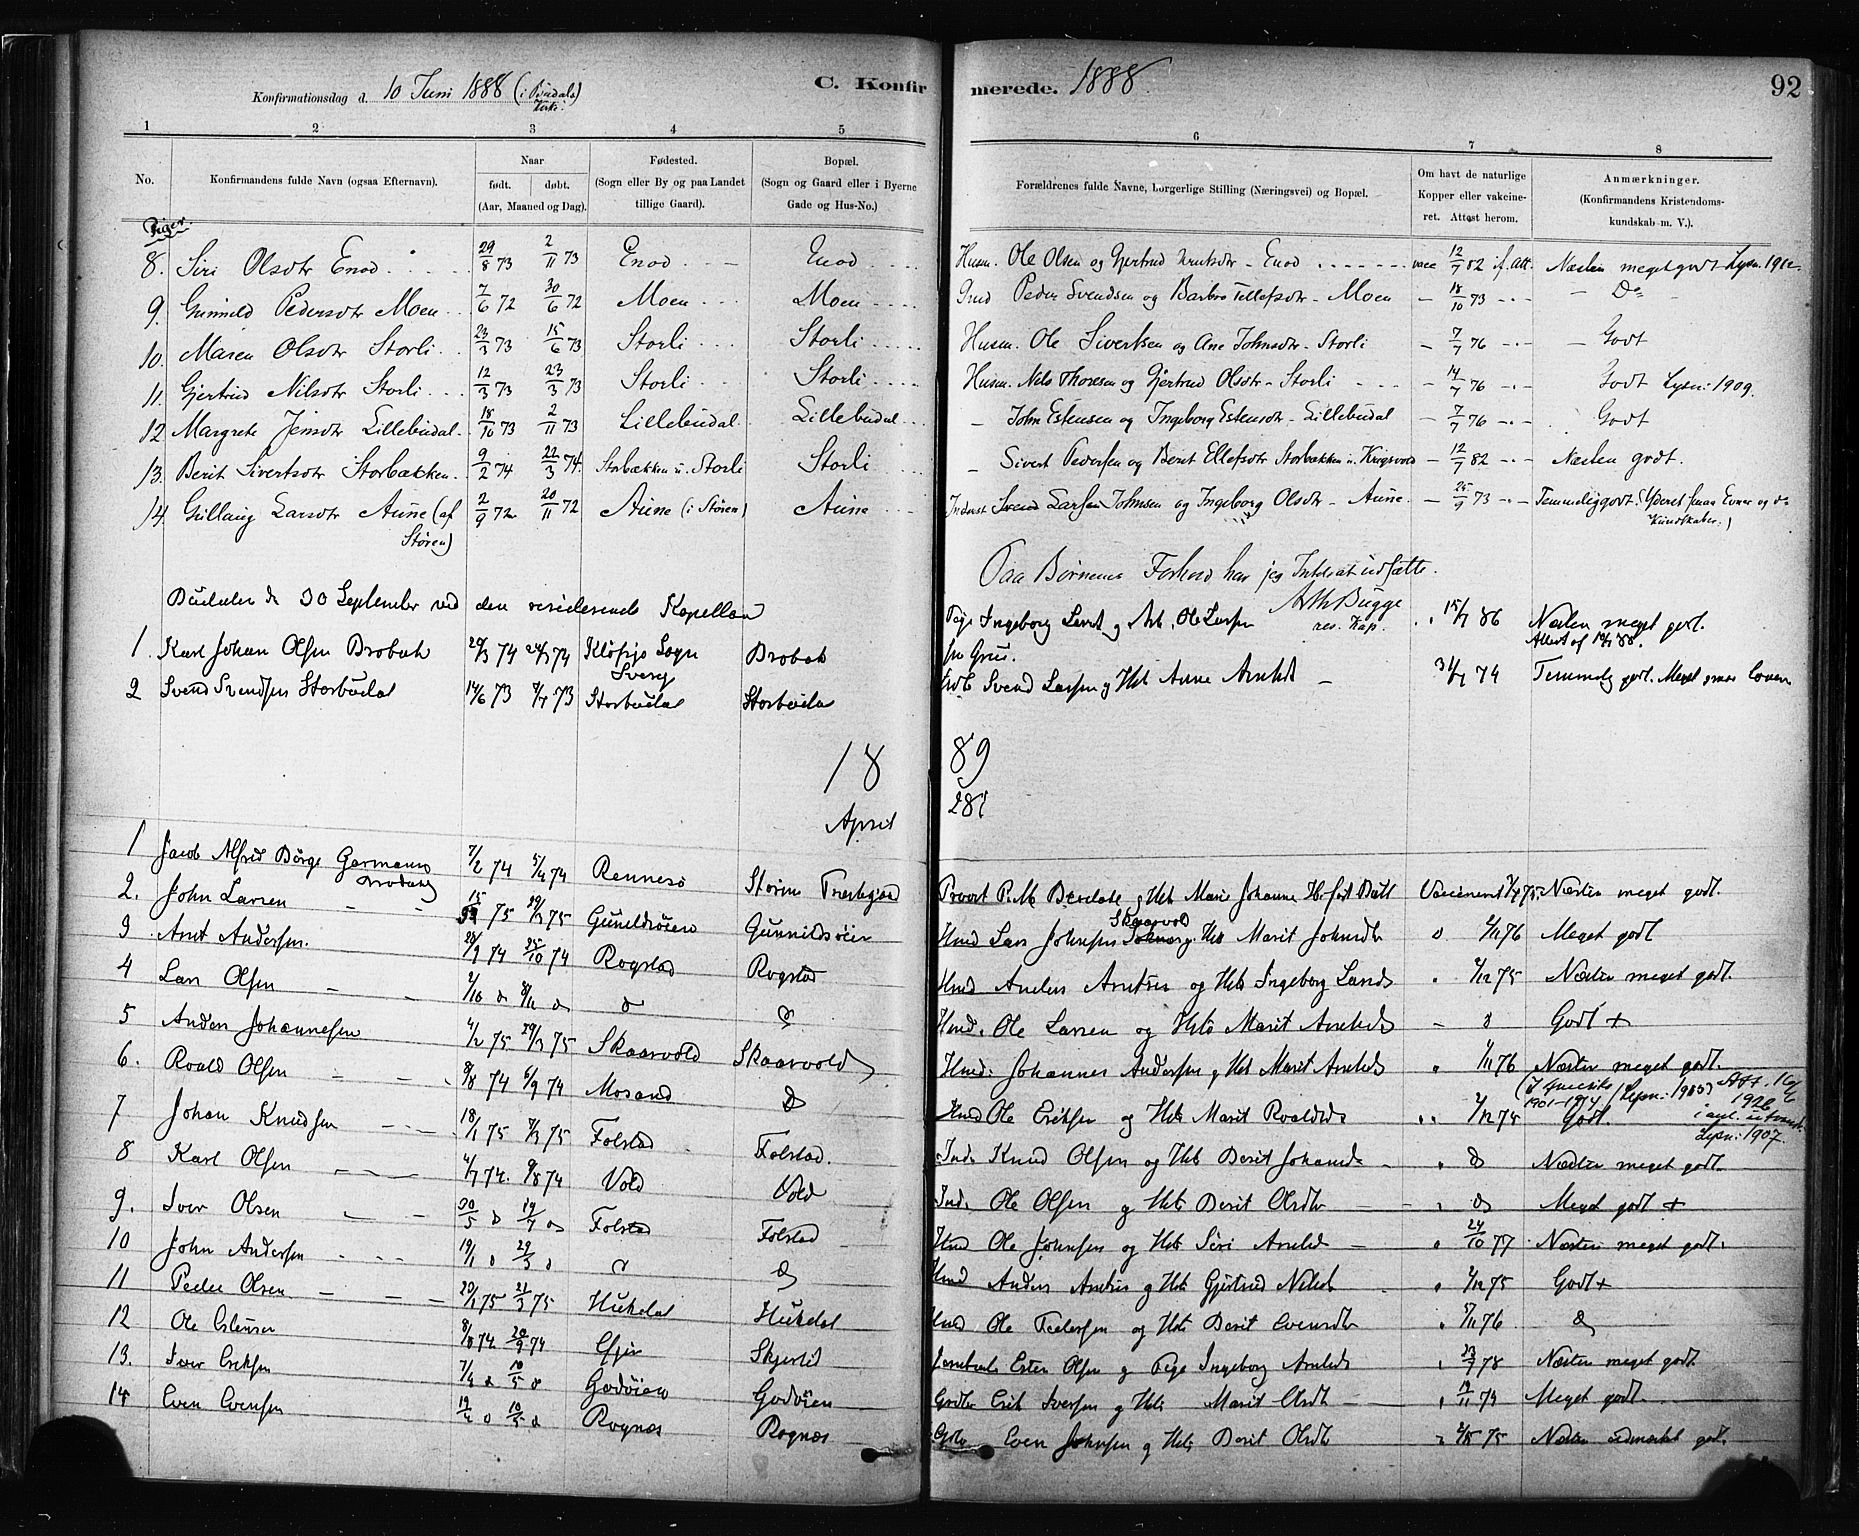 Konfirmationsdag d. 10 Juni 1888 (i Budals Kirke.)
C. Konfirmerede. 1888.
92
1 2 3 4 5 6 7 8
No.
Konfirmandens fulde Navn (ogsaa Efternavn).
Naar født. døbt. (Aar, Maaned og Dag).
Fødested. (Sogn eller By og paa Landet tillige Gaard).
Bopæl. (Sogn og Gaard eller i Byerne Gade og Hus-No.)
Forældrenes fulde Navne, borgerlige Stilling (Næringsvei) og Bopæl.
Om havt de naturlige Kopper eller vakcineret. Attest herom.
Anmærkninger. (Konfirmandens Kristendomskundskab m. V.).
Piger.
8. Siri Olsdtr Enod 29/8 73 2/11 73 Enod Enod Husm. Ole Olsen og Gjertrud Knutsdtr - Enod vacc 12/7 82 if. Att. Næsten meget godt Lysn. 1912.
9. Gunnild Pedersdtr Moen 7/6 72 30/6 72 Moen Moen Peder Svendsen og Barbro Tollefsdtr - Moen 18/10 73 Do
10. Maren Olsdtr Storli 23/3 73 15/6 73 Storli Storli Husm. Ole Sivertsen og Ane Johnsdtr - Storli 7/7 76 Godt
11. Gjertrud Nilsdtr Storli 12/3 73 23/3 73 Storli Storli Husm. Nils Thoresen og Gjertrud Olsdtr - Storli 14/7 76 Godt Lysn. 1909.
12 Margrete Jonsdtr Lillebudal 18/10 73 2/11 73 Lillebudal Lillebudal - John Estensen og Ingeborg Estensdtr - Lillebudal 7/7 76 Godt
13. Berit Sivertsdtr Storbækken 9/2 74 22/3 74 Storbækken u. Storli Storli - Sivert Pedersen og Berit Ellefsdtr Storbækken u. Krigsvold 12/7 82 Næsten godt.
14. Gullaug Larsdtr Aune (af Støren) 2/9 72 20/11 72 Aune (i Støren) Aune Inderst Svend Larsen Johnsen og Ingeborg Olsdtr - Aune 25/9 73 Temmelig godt. (Yderst smaa Evner og do Kundskaber.)
Paa Børnenes Forhold har jeg Intet at udsætte.
Bugge
res. Kap.
Budalen d. 30 September ved den residerende Kapellan
1. Karl Johan Olsen Brobak Sogn Brobak Pige Ingeborg og Ole Larsen 15/7 86 Næsten meget godt.
2 Svend Svendsen Storbudal 14/6 73 Storbudal Storbudal Svend Larsen og Hst Anne 74 Temmelig godt. Meget smaa Evner
1889
April 28de
1 Jacob Alfred Børge Garmann 7/2 74 5/4 74 Rennesø Støren Præstegaard Provst Marie Johanne Vaccineret Næsten meget godt.
2. John Larsen 75 75 Gunnildsøien Gunnildsøien Hmd Lars Johnsen Skaarvold og Hst Marit Johnsdtr 76 Meget godt
3 Arnt Andersen. 20/9 74 25/10 74 Rogstad Rogstad Hmd Anders Arntsen og Hst Ingeborg Larsd 75 Næsten meget godt.
4 Lars Olsen Hmd. Ole Larsen og Hst Marit Godt +
5 Anders Johannesen 4/2 75 29/3 75 Skaarvold Skaarvold Hmd. Johannes Andersen og Hst Marit 76 Næsten meget godt.
6. Roald Olsen 8/8 74 6/9 74 Mosand Hmd Ole Eriksen og Hst Marit Roaldsd 75 Godt. (I Amerika 1901-1914) (Lysn. 1905) Lysn. 1907.
7 Johan Knudsen 18/1 75 7/3 75 Folstad Folstad. Ind. Knud Olsen og Hst Berit Johansd Næsten meget godt.
8 Karl Olsen 4/7 74. 9/8 74 Vold Vold Ind. Ole Olsen og Hst Berit Olsdtr Meget godt +
9. Iver Olsen 30/5 19/7 Folstad Folstad Hmd Ole Johnsen og Hst Siri 24/10 77 Næsten meget godt.
10 John Andersen 19/1 29/3 Hmd Anders og Hst Gjertrud 75 Godt +
11 Peder Olsen 20/1 75 21/3 75 Hukdal Hukdal Hmd Ole Pedersen og Hst Berit Evensdtr 76
12 Ole Estensen 8/8 74 20/9 74 Skjertil Esten Olsen og Pige Ingeborg 23/7 78 Næsten meget godt.
13. Iver Eriksen 7/4 10/5 Godøien Godøien Erik Iversen og Hst Marit Olsdtr 19/11 74 Meget godt.
14 Even Evensen 19/4 10/5 Rognæs Rognæs Even Johnsen og Hst Berit Olsdtr 75 Næsten udmærket godt.